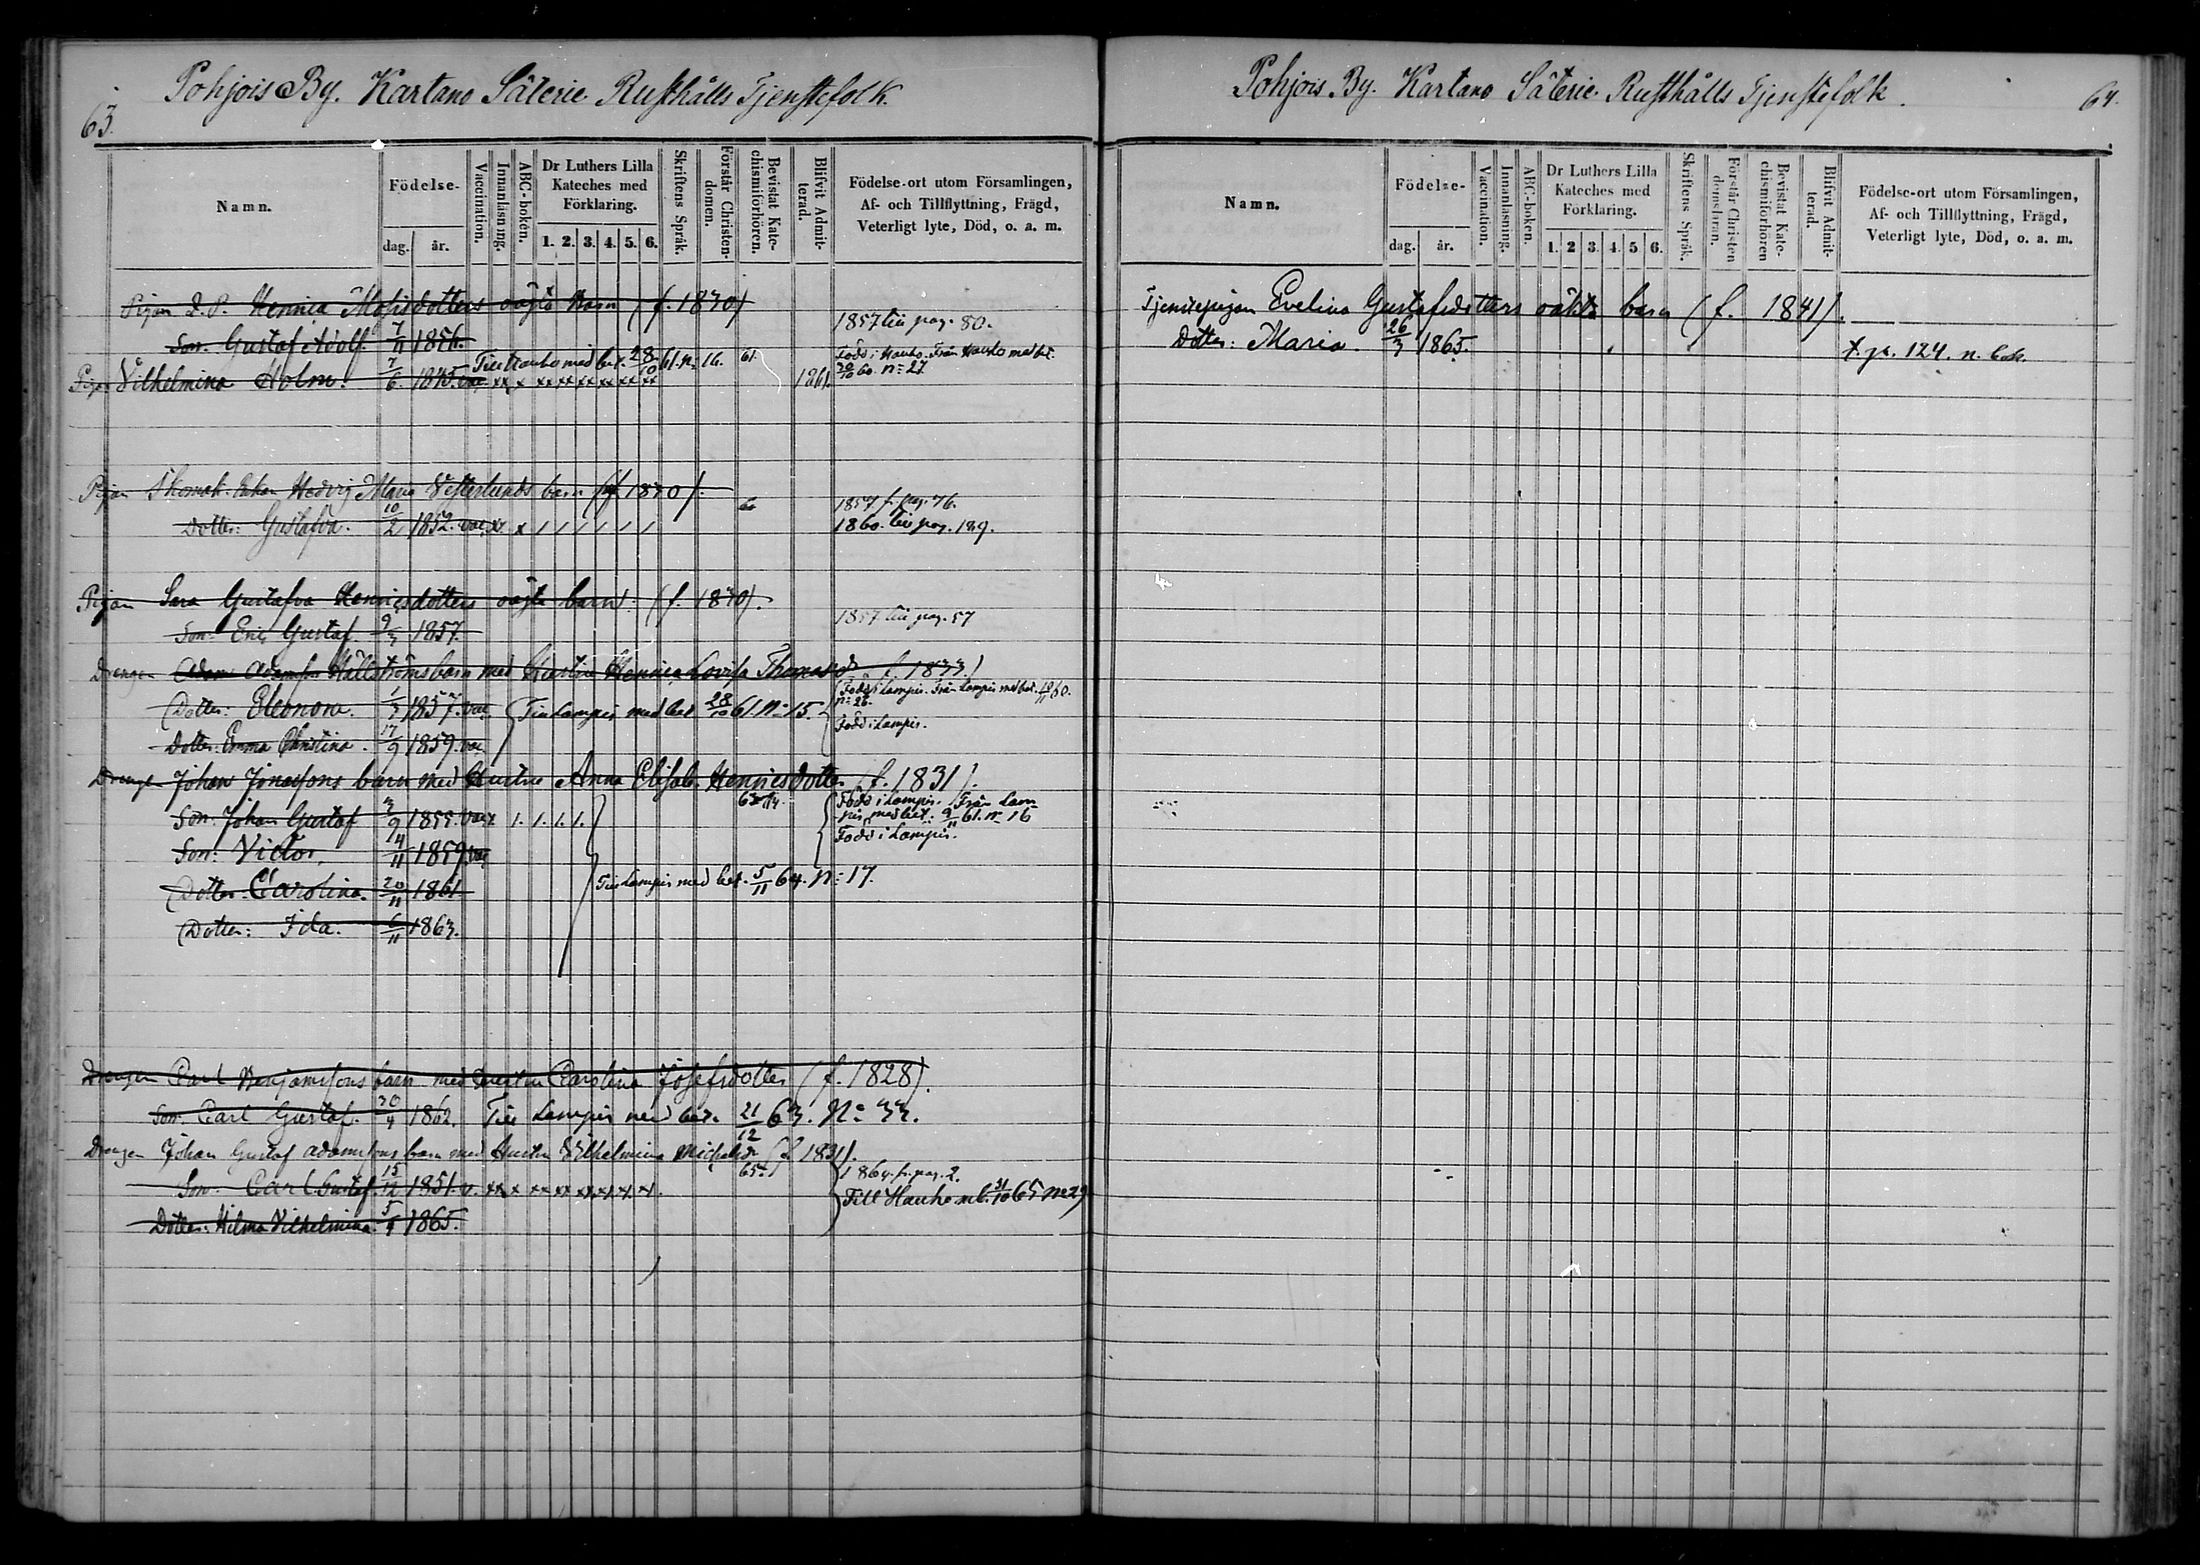 63.
Pohjois By. Kartano Säterie Rusthålls Tjenstefolk.
Namn.
Födelse-
dag.
år.
Vaccination.
Innanläsning.
ABC-boken.
Dr Luthers Lilla
Kateches med
Förklaring.
1. 2. 3. 4. 5. 6.
Skriftens Språk.
Förstår Christen-
domen.
Bevistat Kate-
chismiförhören.
Blifvit Admit-
terad.
Födelse-ort utom Församlingen,
Af- och Tillflyttning, Frägd,
Veterligt lyte, Död, o. a. m.
Pigan D. P. Henrica Mosisdotters oägta barn (f. 1830)
Son. Gustaf Adolf. 7/11 1856. 1857 till pag. 80.
Till Hauho med bet. 28/10 61. n= 16. 61. Född i Hauho. Från Hauho med bet.
Pigan Vilhelmina Holm. 7/6. 1845. vac xx x xx xx xx xx xx xx 1861. 30/10 60. n= 27.
Pigan Skomak. Enkan Hedvig Maria Vesterlunds barn (f. 1830).
60 1857 f. pag. 76.
Dotter: Gustafva. 10/2 1852. vac. x. x / / / / / / 1860. till pag. 189.
Pigan Sara Gustafva Henricsdotters oägta barn: (f. 1830).
Son: Eric Gustaf. 9/3 1857. 1857 till pag. 57
Drengen Adam Adamsson Hällströms barn med Hustru Henrica Lovisa Thomasdr (f. 1833)
Född i Lampis. Från Lampis med bet. 10/11 60.
n= 26.
Dotter: Eleonora. 1/3 1857. vac. Till Lampis med bet 28/10 61. n= 15.
Född i Lampis.
Dotter: Emma Christina. 17/9 1859. vac
Drengen Johan Jonassons barn med Hustru Anna Elisab. Henricsdotter (f. 1831).
Född i Lampis. Från Lam-
Son: Johan Gustaf 3/9 1855. vac x 1. 1. 1. 1. pis med bet. 9/11 61. n= 16
Född i Lampis.
Son: Victor. 14/11 1859. vac
Dotter: Carolina. 20/11 1861 Till Lampis med bet. 5/11 64. n= 17.
Dotter: Ida. 6/11 1863.
Drengen Carl Benjamssons barn med Hustru Carolina Josefsdotter (f. 1828).
Son: Carl Gustaf. 30/4 1862. Till Lampis med bet. 21/12 63. N= 33.
Drengen Johan Gustaf Adamssons barn med Hustru Vilhelmina Michelsdr (f. 1831).
65. 1864. fr. pag. 2.
Son: Carl Gustaf. 15/12 1851. v. xx x xx xx x x x x. Till Hauho m b. 31/10 65 N=29
Dotter: Hilma Vilhelmina. 5/5 1865.
Pohjois By. Kartano Säterie Rusthålls Tjenstefolk.
64.
Namn.
Födelse-
dag.
år.
Vaccination.
Innanläsning.
ABC-boken.
Dr Luthers Lilla
Kateches med
Förklaring.
1. 2 3. 4. 5 6.
Skriftens Språk.
Förstår Christen
domslaran.
Bevistat Kate-
chismiförhören
Blifvit Admit-
terad.
Födelse-ort utom Församlingen,
Af- och Tillflyttning, Frägd,
Veterligt lyte, Död, o. a. m.
Tjenstepigan Evelina Gustafsdotters oäkta barn (f. 1841).
Dotter: Maria 26/3 1865. t. pa. 124. n. bok.